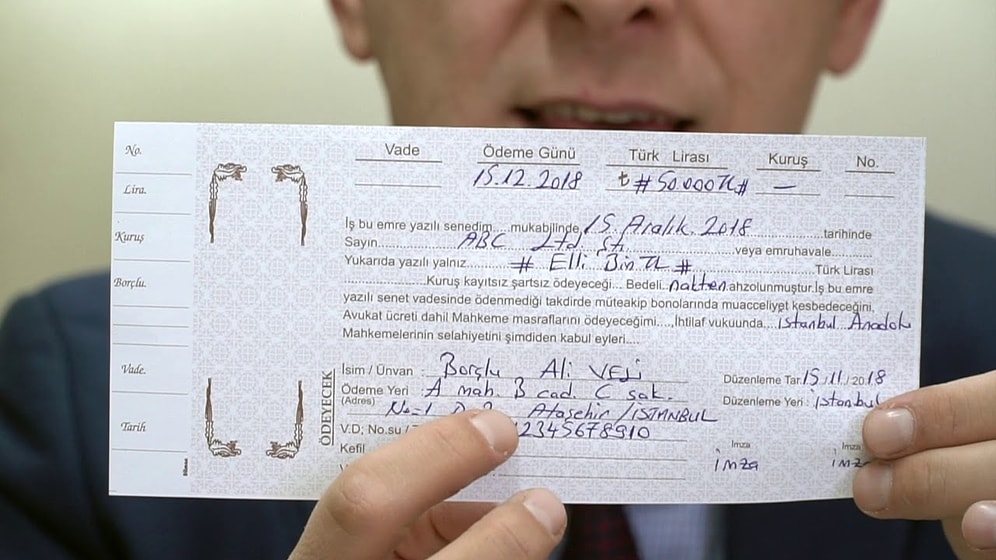 No.
Lira.
Kuruş
Borçlu.
Vade.
Tarih
Vade Ödeme Günü Türk Lirası Kuruş No.
15.12.2018 ₺ #50.000TL# —
İş bu emre yazılı senedim......mukabilinde 15 Aralık 2018 tarihinde
Sayın ABC Ltd Şti veya emruhavale
Yukarıda yazılı yalnız # Elli Bin TL # Türk Lirası
Kuruş kayıtsız şartsız ödeyeceği... Bedeli nakten ahzolunmuştur.İş bu emre
yazılı senet vadesinde ödenmediği takdirde müteakip bonolarında muacceliyet kesbedeceğini,
Avukat ücreti dahil Mahkeme masraflarını ödeyeceğimi...., İhtilaf vukuunda.... istanbul Anadolu
Mahkemelerinin selahiyetini şimdiden kabul eyleri....
ÖDEYECEK
İsim / Ünvan : Borçlu Ali Veli
Ödeme Yeri : A mah. B cad. C sok.
(Adres) No=1 Ataşehir / İSTANBUL
V.D, No.su / 12345678910
Kefil
Düzenleme Tar. 15/11/2018
Düzenleme Yeri : istanbul
İmza İmza
imza imza